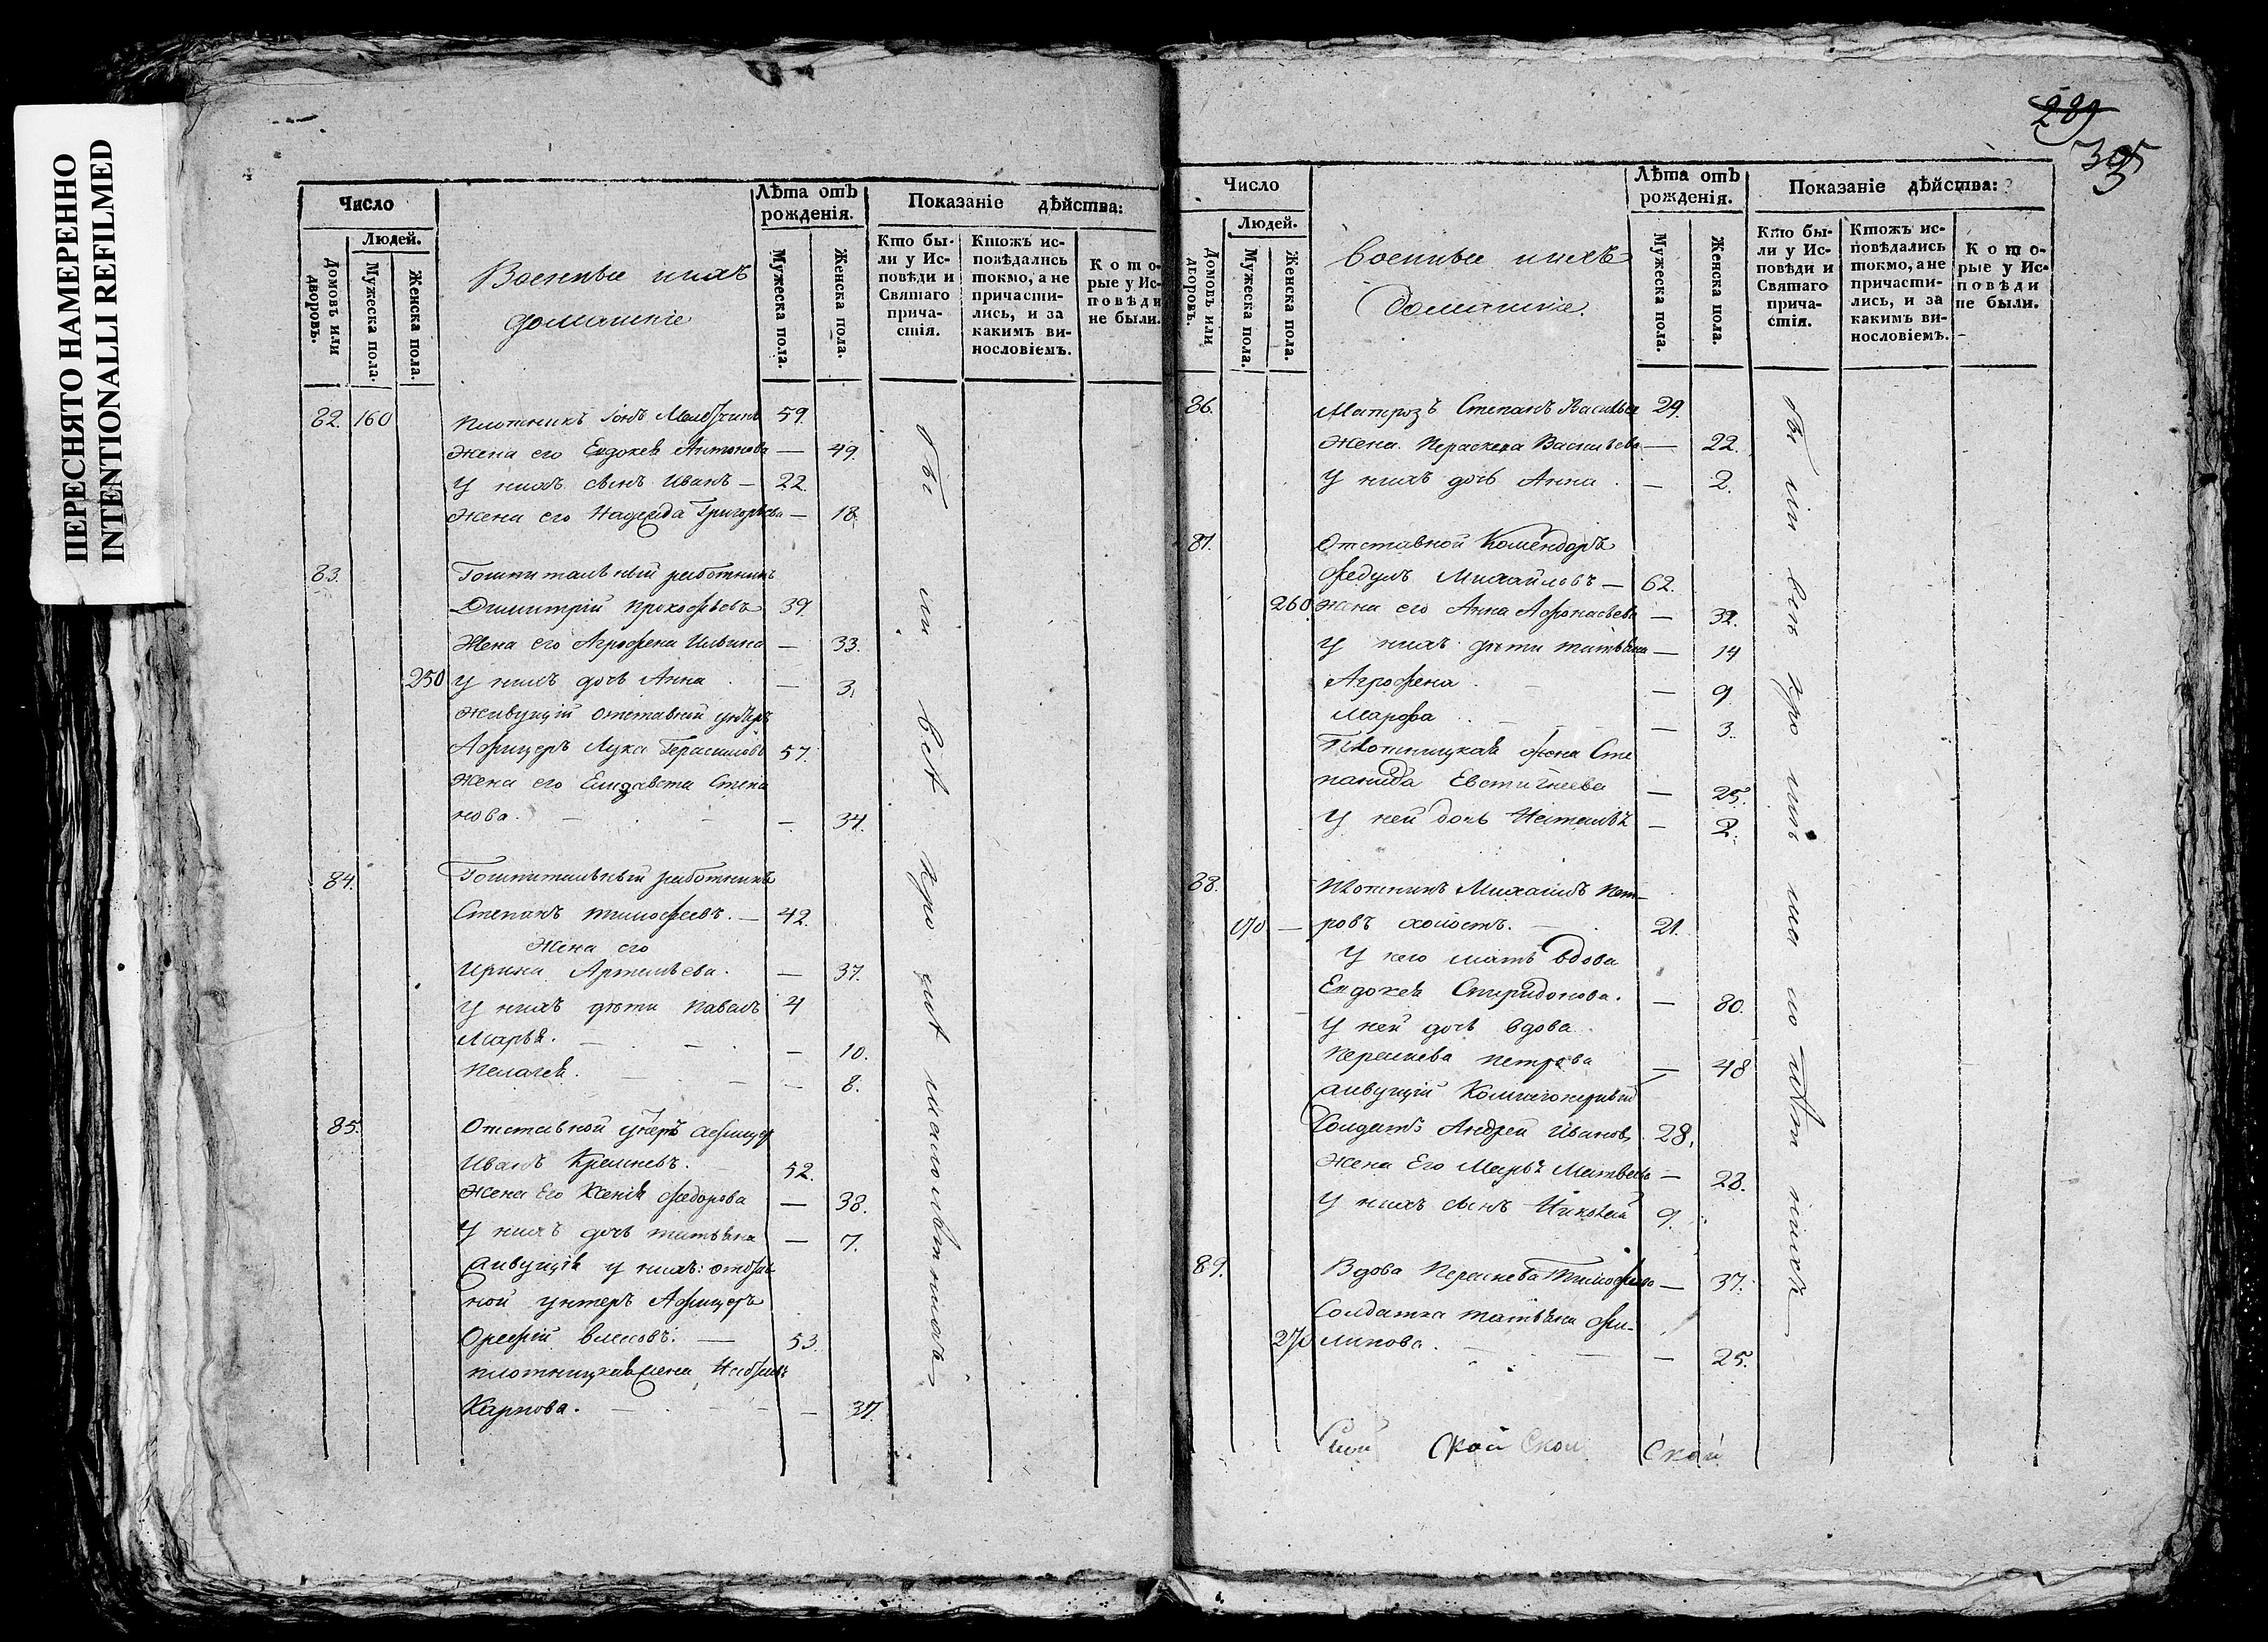 ПЕРЕСНЯТО НАМЕРЕННО
INTENTIONALLI REFILMED
Число
Людей.
Домовъ или дворовъ.
Мужеска пола.
Женска пола.
Военные ихъ
домашніе
Лѣта отъ рожденія.
Мужеска пола.
Женска пола.
Показаніе дѣйства:
Кто бы-
ли у Ис-
повѣди и
Святаго
прича-
стія.
Ктожъ ис-
повѣдались
токмо, а не
причасти-
лись, и за
какимъ ви-
нословіемъ.
Кото-
рые у Ис-
повѣди
не были.
82. 160 Плотникъ 59.
жена его Евдокея Антонова — 49.
у нихъ сынъ Иванъ — 22.
жена его Надежда Григорьева — 18
83. Гошпитальный работникъ
Димитрій Прокофьевъ 39.
Жена его Агрофена Ильина — 33.
250 у нихъ дочь Анна — 3.
живущій отставной унтеръ
Афицеръ Лука Герасимовъ 57.
жена его Елизавета Степа
нова. — 34.
84. Гошпитальный работникъ
Степанъ Тимофеевъ. — 42.
жена его
Ирина Артемьева. — 37.
у нихъ дѣти Павелъ 4
Марья. — 10.
Пелагея. — 8.
85. Отставной унтеръ афицер
Иванъ Кремневъ. 52.
жена Его Ксенія Федорова — 38.
у нихъ дочь татьяна — 7.
живущія у нихъ: отстав
ной унтеръ Афицеръ
53.
плотницкая жена
Карпова. — 37.
289
305
Число
Людей.
Домовъ или дворовъ.
Мужеска пола.
Женска пола.
военные ихъ
домашніе.
Лѣта отъ рожденія.
Мужеска пола.
Женска пола.
Показаніе дѣйства:
Кто бы-
ли у Ис-
повѣди и
Святаго
прича-
стія.
Ктожъ ис-
повѣдались
токмо, а не
причасти-
лись, и за
какимъ ви-
нословіемъ.
Кото-
рые у Ис-
повѣди
не были.
86. Матрозъ Степанъ Васильев 29.
жена Параскева Васильева — 22.
у нихъ дочь Анна — 2.
87. Отставной Комендоръ
Федулъ Михайловъ — 62.
260 жена его Анна Афонасьева — 32.
у нихъ дѣти татьяна — 14
Агрофена — 9
Марфа — 3.
Плотницкая жена Сте
панида Евстигнеева — 25.
у ней дочь Наталья — 2.
88. Плотникъ Михаилъ Пет-
170 — ровъ холостъ. 21.
у него мать вдова
Евдокея Спиридонова. — 80.
у ней дочь вдова
Параскева Петрова — 48
живущій
Солдатъ Андрей Иванов 28.
жена Его Марья Матвеева — 28.
у нихъ сынъ Николай 9.
89. Вдова Параскева Тимофеева — 37.
Солдатка татьяна Фи-
270 липова. — 25.
Ской Ской Ской